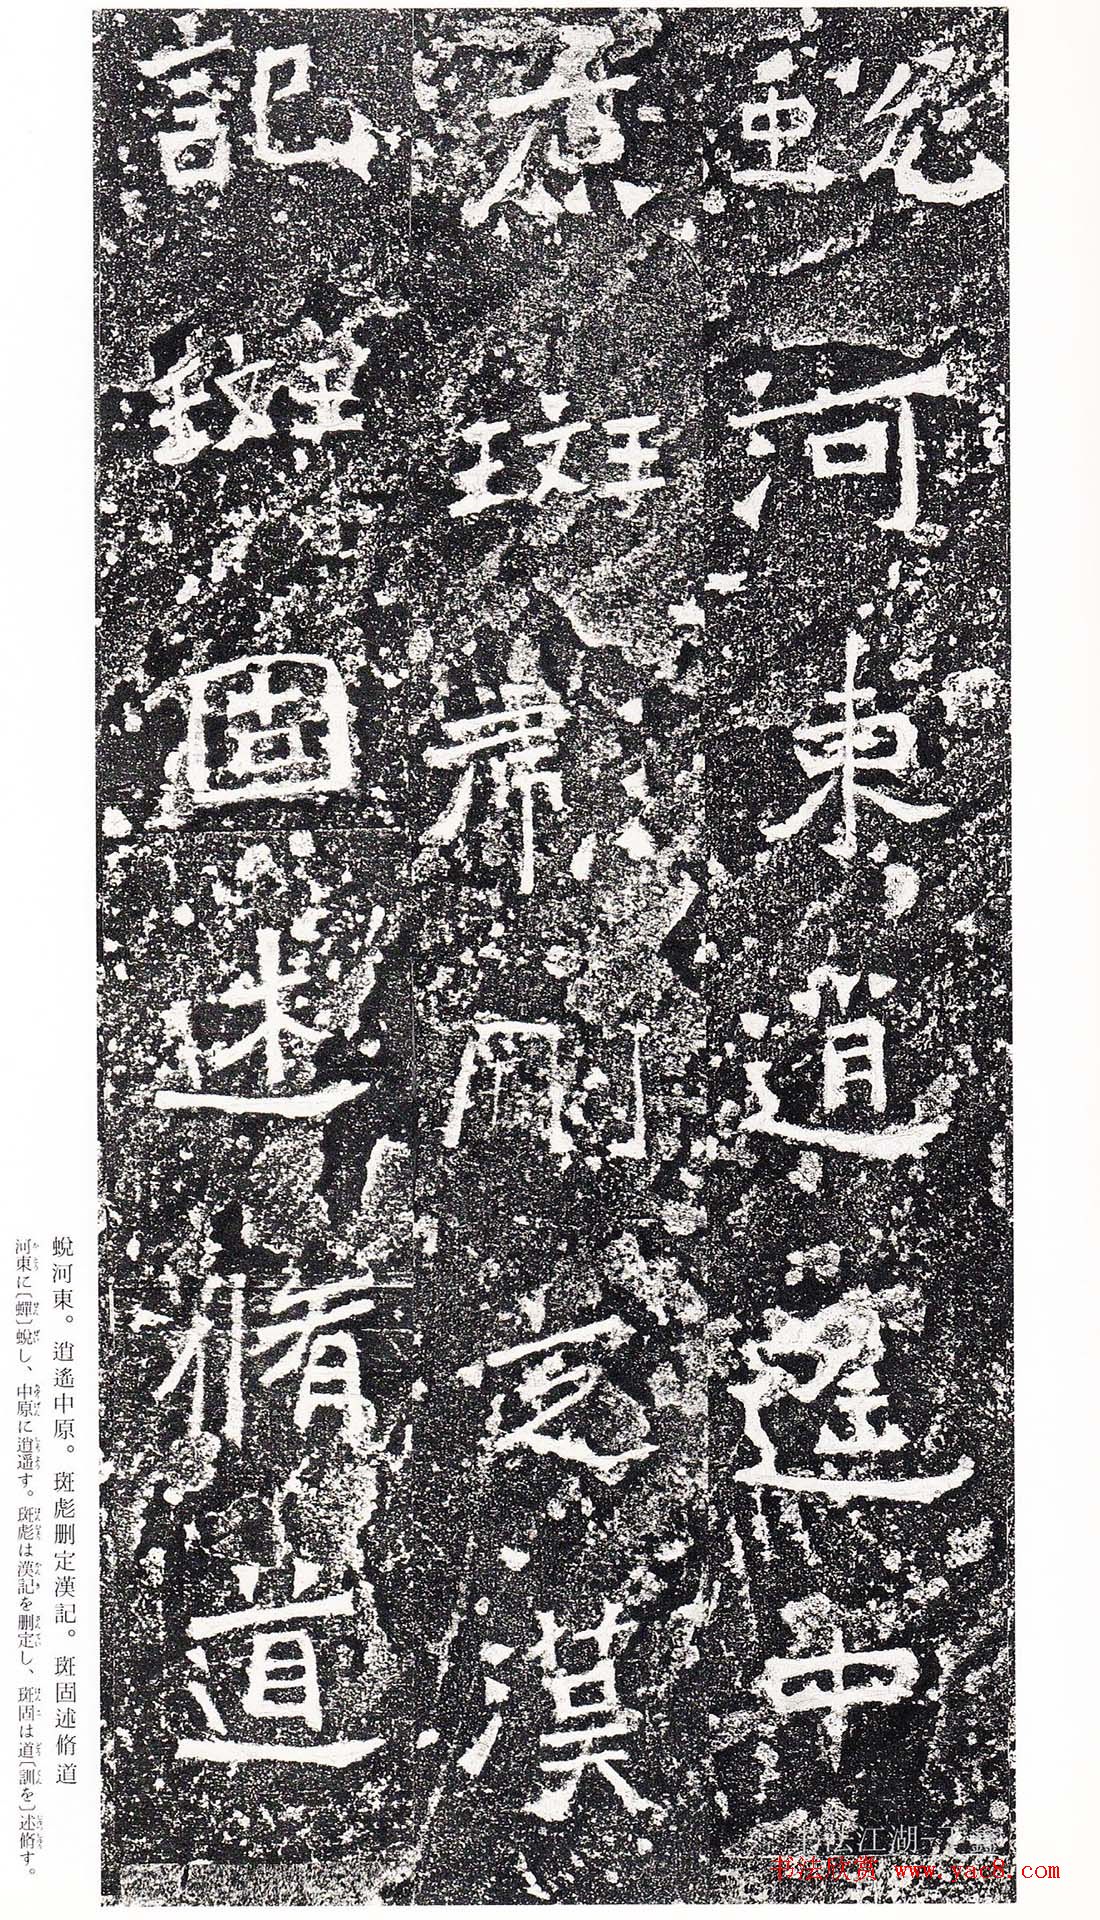 蛻河東逍遙中
原斑彪刪定漢
記斑固述脩道
蛻河東。逍遙中原。斑彪刪定漢記。斑固述脩道
河東に〔蟬〕蛻し、中原に逍遥す。斑彪は漢記を刪定し、斑固は道〔訓を〕述脩す。
书法欣赏 www.yac8.com